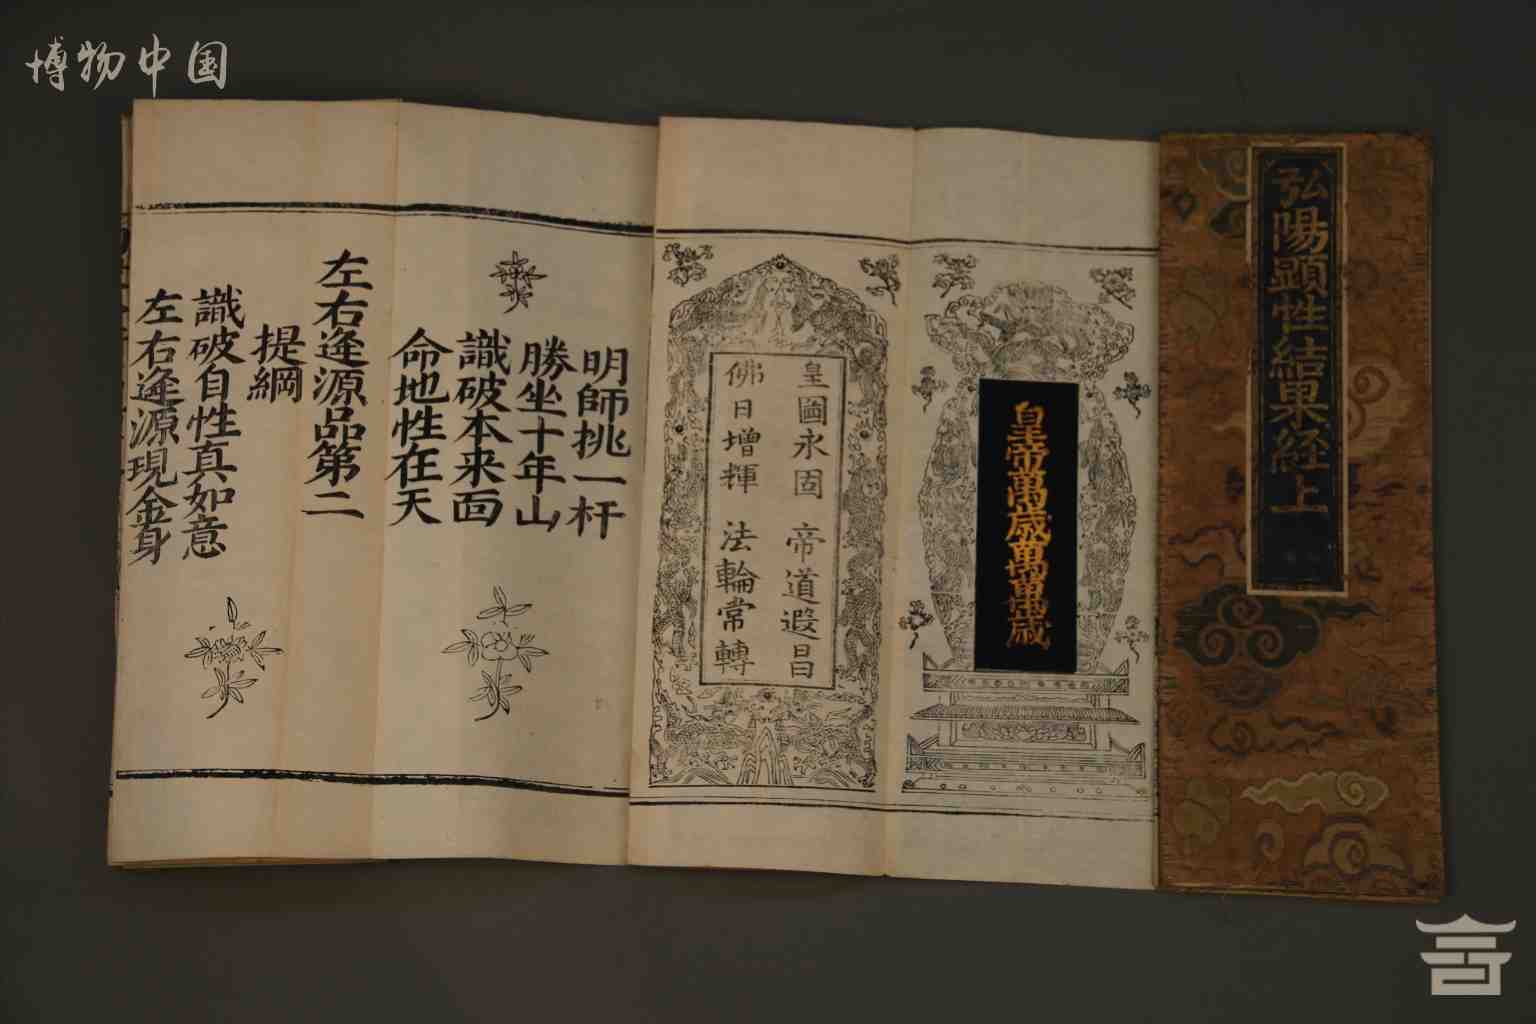 博物中国
弘陽顕性結果経上
皇帝萬歲萬萬歲
皇圖永固　帝道遐昌
佛日增輝　法輪常轉
明師挑一杆
勝坐十年山
識破本来面
命地性在天
左右逄源品第二
提綱
識破自性真如意
左右逄源現金身